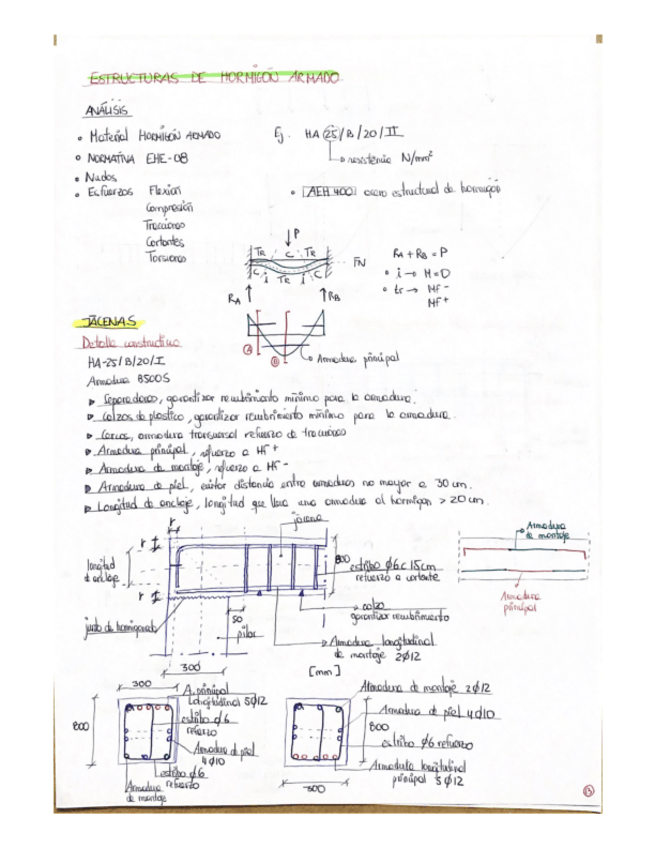 ESTRUCTURAS DE HORMIGÓN ARMADO
ANÁLISIS
• Material HORMIGÓN ARMADO
• NORMATIVA EHE-08
• Nudos
• Esfuerzos Flexión
Compresión
Tracciones
Cortantes
Torsiones
Ej. HA/25/B/20/II
resistencia N/mm²
• AEH 400 acero estructural de hormigón
P
TR C TR
C i TR i C
FN
RA
RB
RA + RB = P
• i → M=0
• tr → Mf -
Mf +
A
B
Armadura principal
JÁCENAS
Detalle constructivo
HA-25/B/20/I
Armadura B500S
▷ Separadores, garantizar recubrimiento mínimo para la armadura.
▷ Calzos de plástico, garantizar recubrimiento mínimo para la armadura.
▷ Cercos, armadura transversal refuerzo de tracciones
▷ Armadura principal, refuerzo a Mf +
▷ Armadura de montaje, refuerzo a Mf -
▷ Armadura de piel, evitar distancia entre armaduras no mayor a 30 cm.
▷ Longitud de anclaje, longitud que lleva una armadura al hormigón > 20 cm.
r
jácena
r
longitud
d anclaje
r
800
estribo φ6 c 15cm
refuerzo a cortante
calzo
garantizar recubrimiento
junta de hormigonado
50
pilar
Armadura longitudinal
de montaje 2φ12
300
[mm]
Armadura
de montaje
Armadura
principal
300
800
A. principal
Longitudinal 5φ12
estribo φ6
refuerzo
Armadura d piel
4φ10
estribo φ6
refuerzo
Armadura
de montaje
Armadura de montaje 2φ12
Armadura de piel 4φ10
800
estribo φ6 refuerzo
Armadura longitudinal
principal 5φ12
300